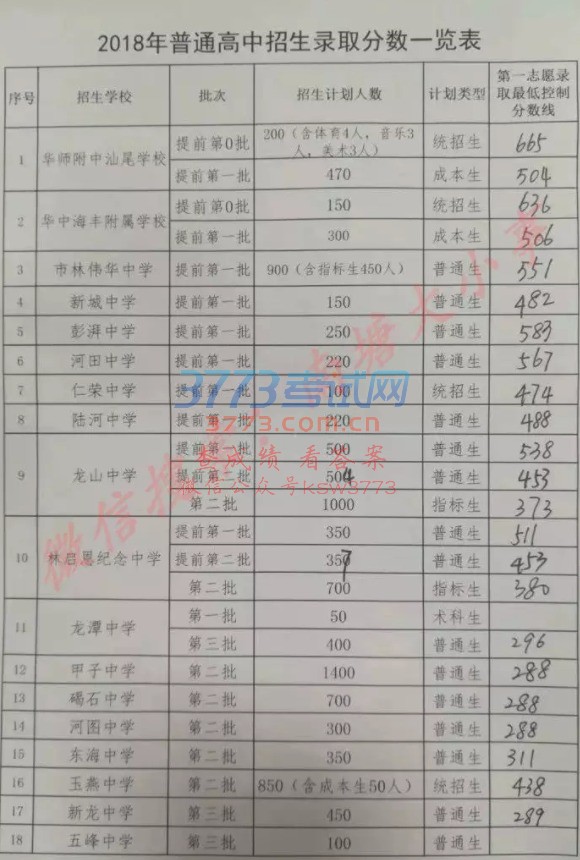 2018年普通高中招生录取分数一览表
序号 招生学校 批次 招生计划人数 计划类型 第一志愿录取最低控制分数线
1 华师附中汕尾学校 提前第0批 200（含体育4人，音乐3人，美术3人） 统招生 665
提前第一批 470 成本生 504
2 华中海丰附属学校 提前第0批 150 统招生 636
提前第一批 300 成本生 506
3 市林伟华中学 提前第一批 900（含指标生450人） 普通生 551
4 新城中学 提前第一批 150 普通生 482
5 彭湃中学 提前第一批 250 普通生 583
6 河田中学 提前第一批 220 普通生 567
7 仁荣中学 提前第一批 100 统招生 474
8 陆河中学 提前第一批 220 普通生 488
9 龙山中学 提前第一批 500 普通生 538
提前第二批 504 普通生 453
第二批 1000 指标生 373
10 林启恩纪念中学 提前第一批 350 普通生 511
提前第二批 357 普通生 453
第二批 700 指标生 380
11 龙潭中学 第一批 50 术科生
第三批 400 普通生 296
12 甲子中学 第二批 1400 普通生 288
13 碣石中学 第二批 700 普通生 288
14 河图中学 第二批 300 普通生 288
15 东海中学 第二批 350 普通生 311
16 玉燕中学 第二批 850（含成本生50人） 统招生 438
17 新龙中学 第三批 450 普通生 289
18 五峰中学 第三批 100 普通生
3773考试网
3773.com.cn
查成绩 看答案
微信公众号ksw3773
微信搜
塘大小事